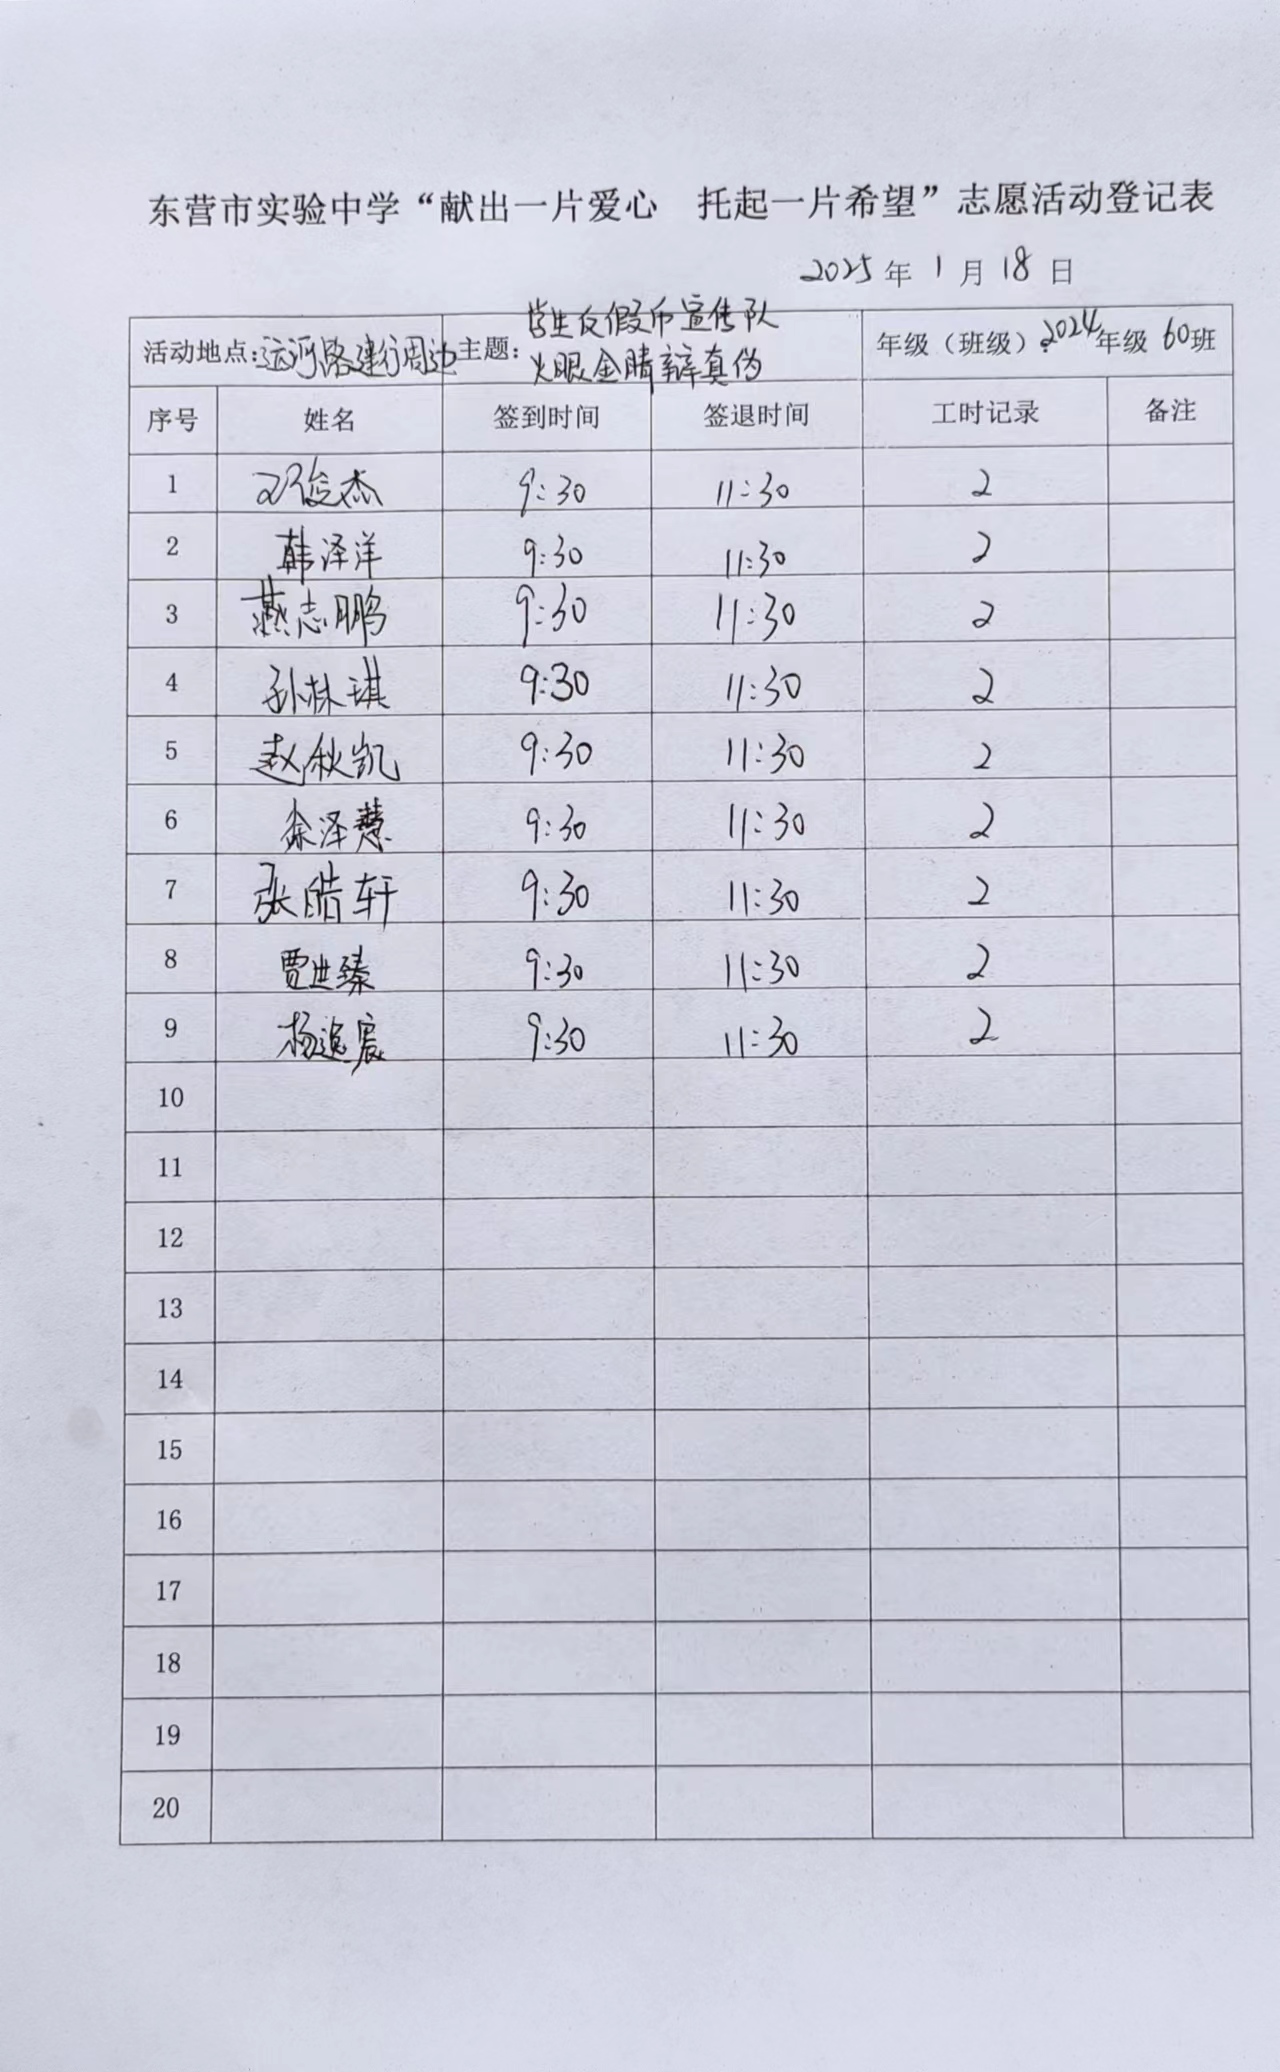 东营市实验中学“献出一片爱心 托起一片希望”志愿活动登记表
2025年1月18日
活动地点:运河路建行周边 主题: 学生反假币宣传队 火眼金睛辩真伪 年级（班级）:2024年级 60班
序号 姓名 签到时间 签退时间 工时记录 备注
1 俊杰 9:30 11:30 2
2 韩泽洋 9:30 11:30 2
3 燕志鹏 9:30 11:30 2
4 孙林琪 9:30 11:30 2
5 赵秋凯 9:30 11:30 2
6 徐泽慧 9:30 11:30 2
7 张皓轩 9:30 11:30 2
8 贾世臻 9:30 11:30 2
9 杨逸宸 9:30 11:30 2
10
11
12
13
14
15
16
17
18
19
20